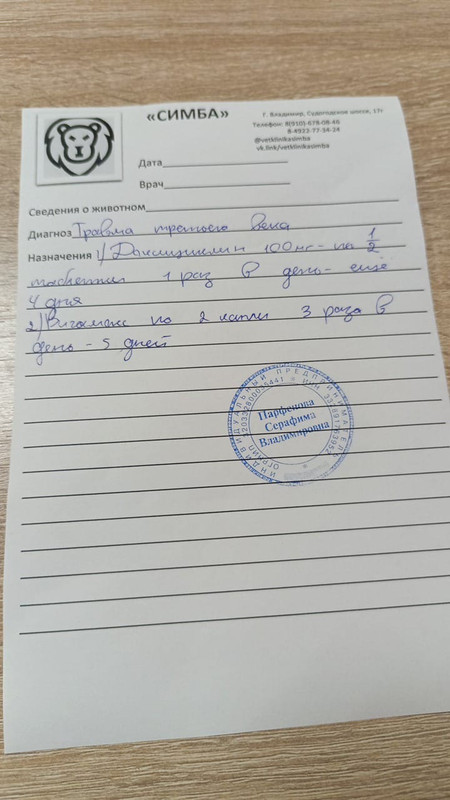 «СИМБА»
Г. Владимир, Судогодское шоссе, 17г
Телефон: 8(910)-678-08-46
8-4922-77-34-24
@vetklinikasimba
vk.link/vetklinikasimba
Дата
Врач
Сведения о животном
Диагноз Травма третьего века
Назначения 1) Доксициклин 100мг - по 1/2
таблетки 1 раз в день - ещё
4 дня
2) Вигамокс по 2 капли 3 раза в
день - 5 дней
ИНДИВИДУАЛЬНЫЙ ПРЕДПРИНИМАТЕЛЬ
Парфенова
Серафима
Владимировна